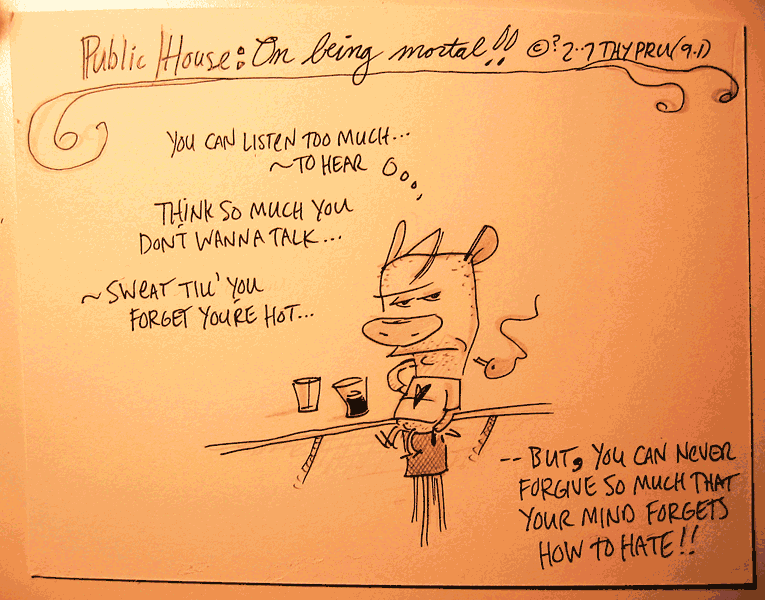 Public House: On being mortal!! ©? 2.7 THYPRU (9.1)
YOU CAN LISTEN TOO MUCH...
~TO HEAR
THINK SO MUCH YOU
DON'T WANNA TALK...
~ SWEAT TILL' YOU
FORGET YOU'RE HOT...
-- BUT, YOU CAN NEVER
FORGIVE SO MUCH THAT
YOUR MIND FORGETS
HOW TO HATE!!